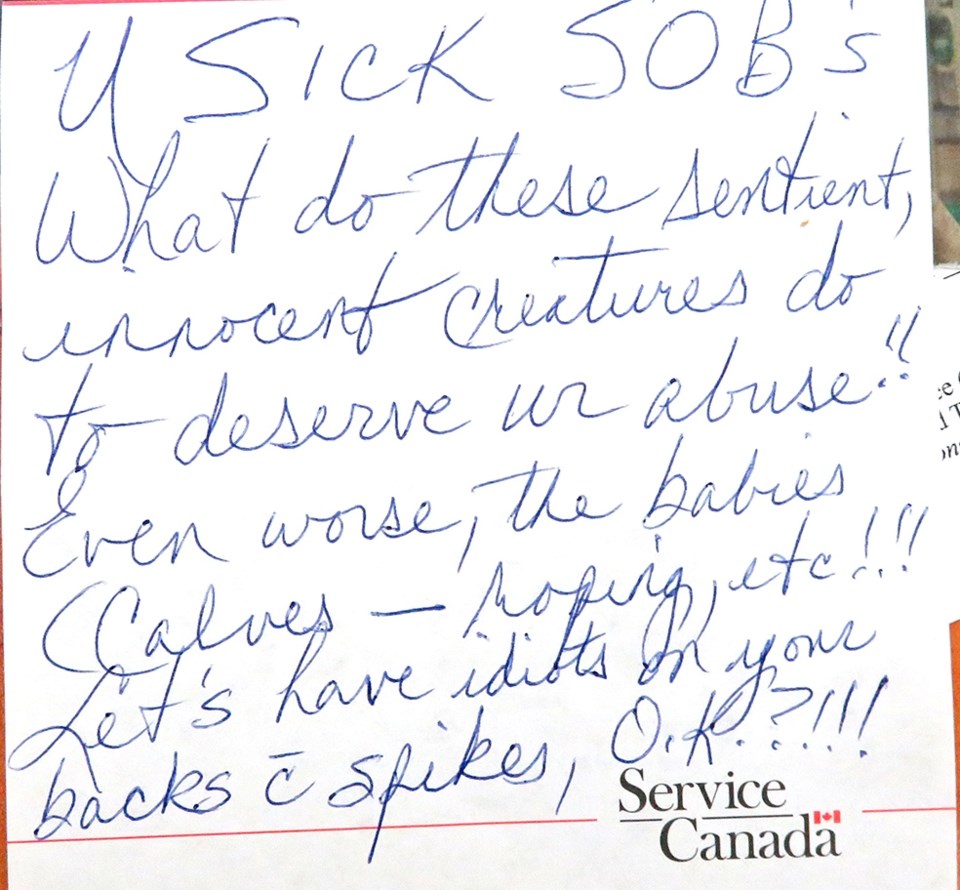 U SICK SOB's
What do these sentient,
innocent creatures do
to deserve ur abuse!!
Even worse, the babies
(Calves — roping, etc!!!
Let's have idiots on your
backs c̄ spikes, O.K.?!!!
Service
Canada